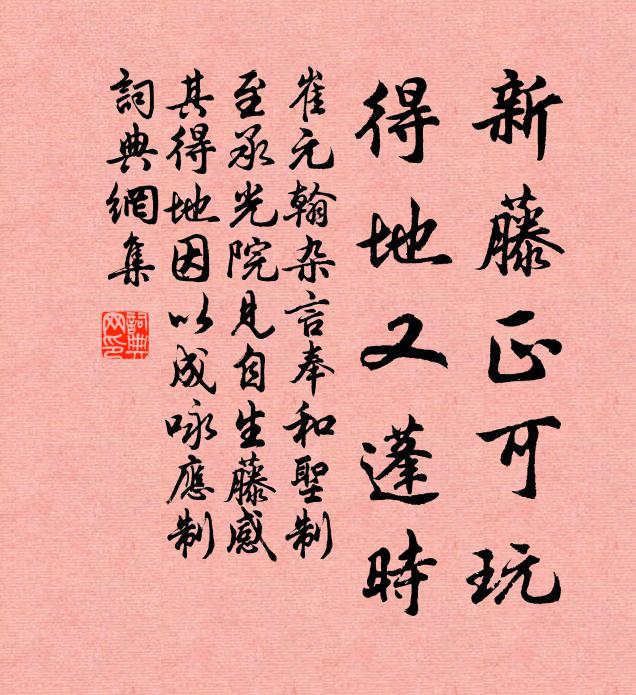 新藤正可玩
得地又蓬時
崔元翰杂言奉和聖制
至承光院見自生藤感
其得地因以成咏應制
詞典網集
詞典网印